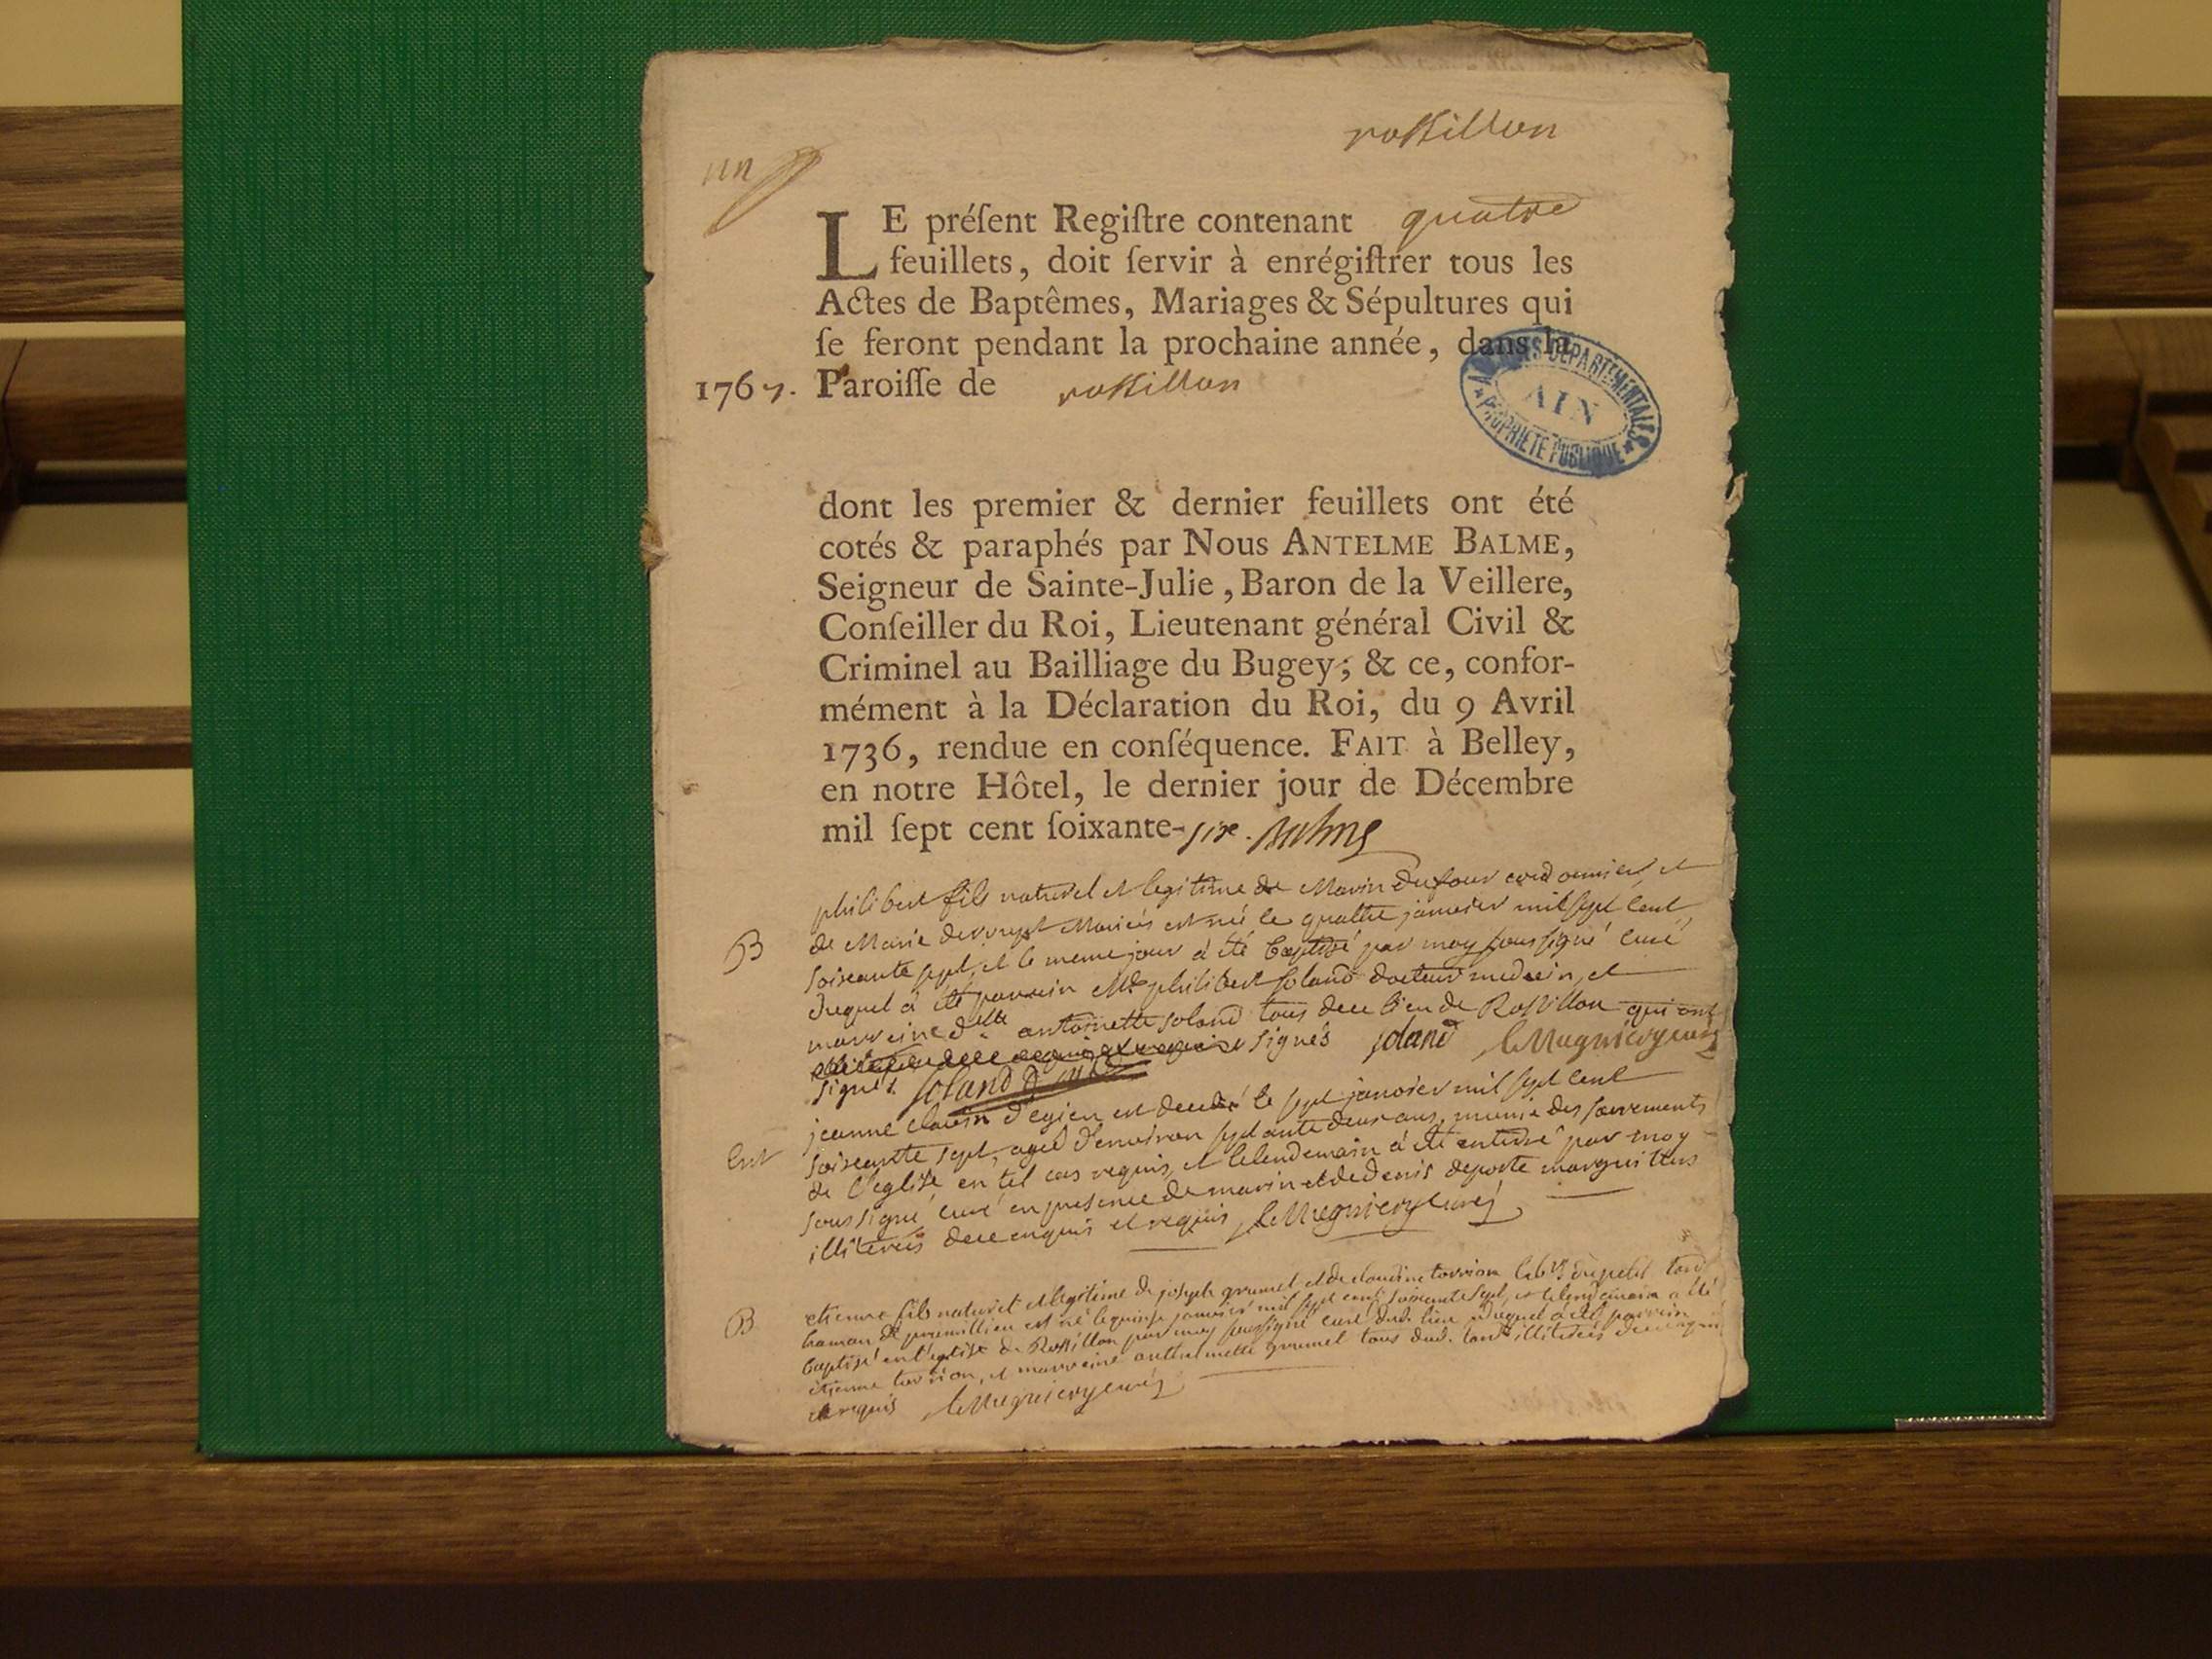 rossillon
un
LE préſent Regiſtre contenant quatre
feuillets, doit ſervir à enrégiſtrer tous les
Actes de Baptêmes, Mariages & Sépultures qui
ſe feront pendant la prochaine année, dans la
1767. Paroiſſe de rossillon
ARCHIVES DÉPARTEMENTALES
AIN
PROPRIÉTÉ PUBLIQUE
dont les premier & dernier feuillets ont été
cotés & paraphés par Nous ANTELME BALME,
Seigneur de Sainte-Julie, Baron de la Veillere,
Conſeiller du Roi, Lieutenant général Civil &
Criminel au Bailliage du Bugey; & ce, confor-
mément à la Déclaration du Roi, du 9 Avril
1736, rendue en conſéquence. FAIT à Belley,
en notre Hôtel, le dernier jour de Décembre
mil ſept cent ſoixante-six. Balme
philibert fils naturel et legitime de Marin dufour cordonnier, et
B de Marie Mariés est né le quattre janvier mil sept cent
soixante sept, et le meme jour a été baptisé par moy soussigné curé
duquel a été parrein Mr philibert soland docteur medecin, et
marreine dlle antoinette soland tous de ce lieu de Rossillon qui ont
signés soland
signés soland
jeanne d'egieu est decedé le sept janvier mil sept cent
Ent soixante sept, agée d'environ septante deux ans, munie des sacrements
de l'eglise en tel cas requis, et le lendemain a été enterré par moy
soussigné curé en presence de marin et de denis deporte marguilliers
illiterés de ce enquis et requis curé
B etienne fils naturel et legitime de joseph grumel et de claudine torrion du petit tard
hameau de premillieu est né le quinse janvier mil sept cent soixante sept, et le lendemain a été
baptisé en l'eglise de Rossillon par moy soussigné curé dud. lieu duquel a été parrein
etienne torrion, et marreine anthelmette grumel tous dud. tard illiterés de ce enquis
et requis curé